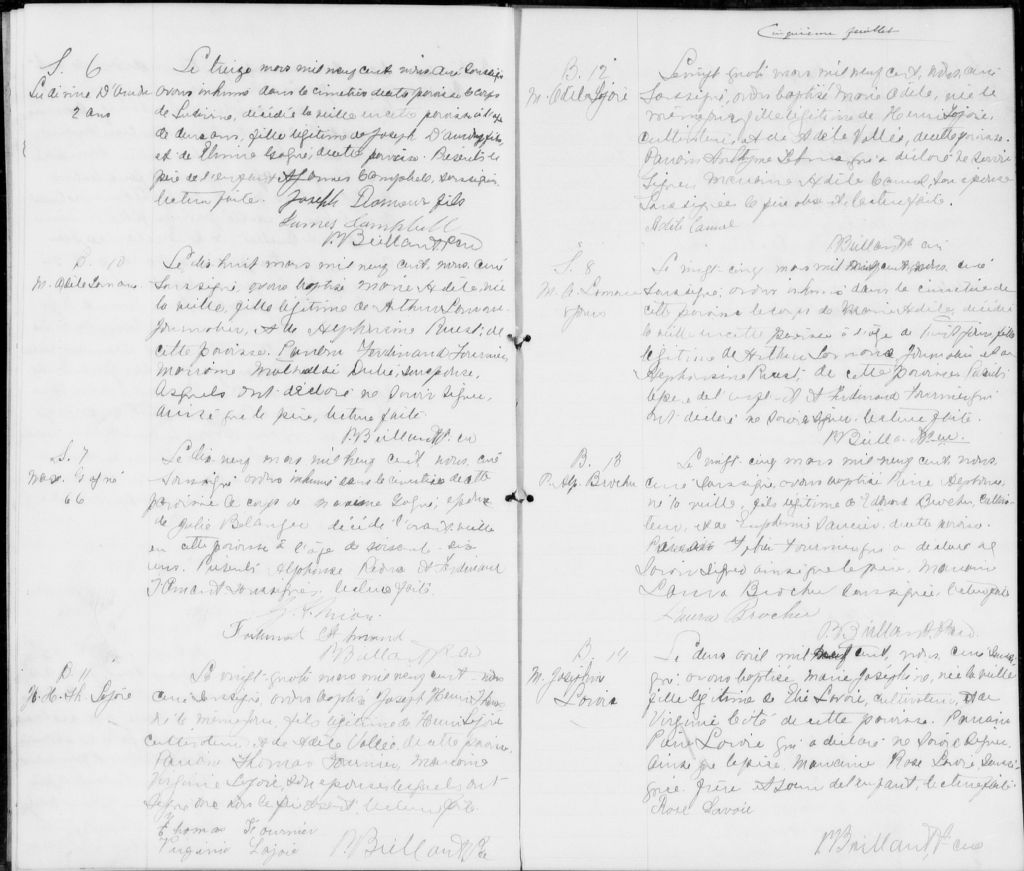 S. 6
Ludivine D'amours
2 ans
Le treize mars mil neuf cent, nous curé soussigné
avons inhumé dans le cimetière de cette paroisse le corps
de Ludivine, décédée la veille en cette paroisse à l'age
de deux ans, fille légitime de Joseph D'amours fils,
et de Gagné, de cette paroisse. Présents le
père de l'enfant et James Campbell, soussignés
lecture faite. Joseph Damour fils
James Campbell
P. Brillant Ptr cu
B. 10
M. Adèle
Le dix huit mars mil neuf cent, nous, curé
soussigné, avons baptisé Marie Adèle, née
la veille, fille légitime de Arthur
Journalier, et de Alphonsine Ruest, de
cette paroisse. Parrain Ferdinand Fournier,
marraine Mathilde Dubé, son épouse,
lesquels ont déclaré ne savoir signer,
ainsi que le père, lecture faite.
P. Brillant Pt. cu
S. 7
Gagné
66
Le dix neuf mars mil neuf cent, nous, curé
soussigné, avons inhumé dans le cimetière de cette
paroisse le corps de Gagné, épouse
de Belanger décédée l'avant veille
en cette paroisse à l'âge de soixante-six
ans. Présents Alphonse et Ferdinand
soussignés, lecture faite.
P. Brillant Ptr cu
B. 11
J. H. Th. Lajoie
Le vingt-quatre mars mil neuf cent, nous
curé soussigné, avons baptisé Joseph Henri Thomas
né le même jour, fils légitime de Henri Lajoie
cultivateur, et de Adèle Vallée, de cette paroisse.
Parrain Thomas Fournier, marraine
Virginie Lajoie, son épouse, lesquels ont
signé avec nous, le père absent, lecture faite.
Thomas Fournier
Virginie Lajoie P. Brillant Ptr
Cinquième feuillet
B. 12
M. Adèle Lajoie
Le vingt quatre mars mil neuf cent, nous, curé
soussigné, avons baptisé Marie Adèle, née le
même jour, fille légitime de Henri Lajoie,
cultivateur, et de Adèle Vallée, de cette paroisse.
Parrain qui a déclaré ne savoir
signer, marraine Adèle Camel, son épouse
soussignée, le père absent, lecture faite.
Adèle Camel
P. Brillant Pt. cu
S. 8
M. A.
8 jours
Le vingt-cinq mars mil neuf cent, nous, curé
soussigné, avons inhumé dans le cimetière de
cette paroisse le corps de Marie Adèle, décédée
la veille en cette paroisse à l'âge de huit jours, fille
légitime de Arthur Journalier et de
Alphonsine Ruest, de cette paroisse. Présents
le père de l'enfant et Ferdinand Fournier qui
ont déclaré ne savoir signer. lecture faite.
P. Brillant Ptr cu.
B. 13
P. Alp. Brochu
Le vingt-cinq mars mil neuf cent, nous
curé soussigné, avons baptisé Pierre Alphonse
né la veille, fils légitime de Edouard Brochu, cultiva-
teur, et de Euphémie de cette paroisse.
Parrain Fournier qui a déclaré ne
savoir signer ainsi que le père, marraine
Laura Brochu soussignée. lecture faite
Laura Brochu
P. Brillant Ptr cu
B. 14
M. Joséphine
Lavoie
Le deux avril mil neuf cent, nous, curé soussi-
gné, avons baptisé Marie Joséphine, née la veille
fille légitime de Elie Lavoie, cultivateur, et de
Virginie Coté de cette paroisse. Parrain
Pierre Lavoie qui a déclaré ne savoir signer,
ainsi que le père, marraine Rose Lavoie soussi-
gnée, frère et soeur de l'enfant, lecture faite.
Rose Lavoie
P. Brillant Pt. cure